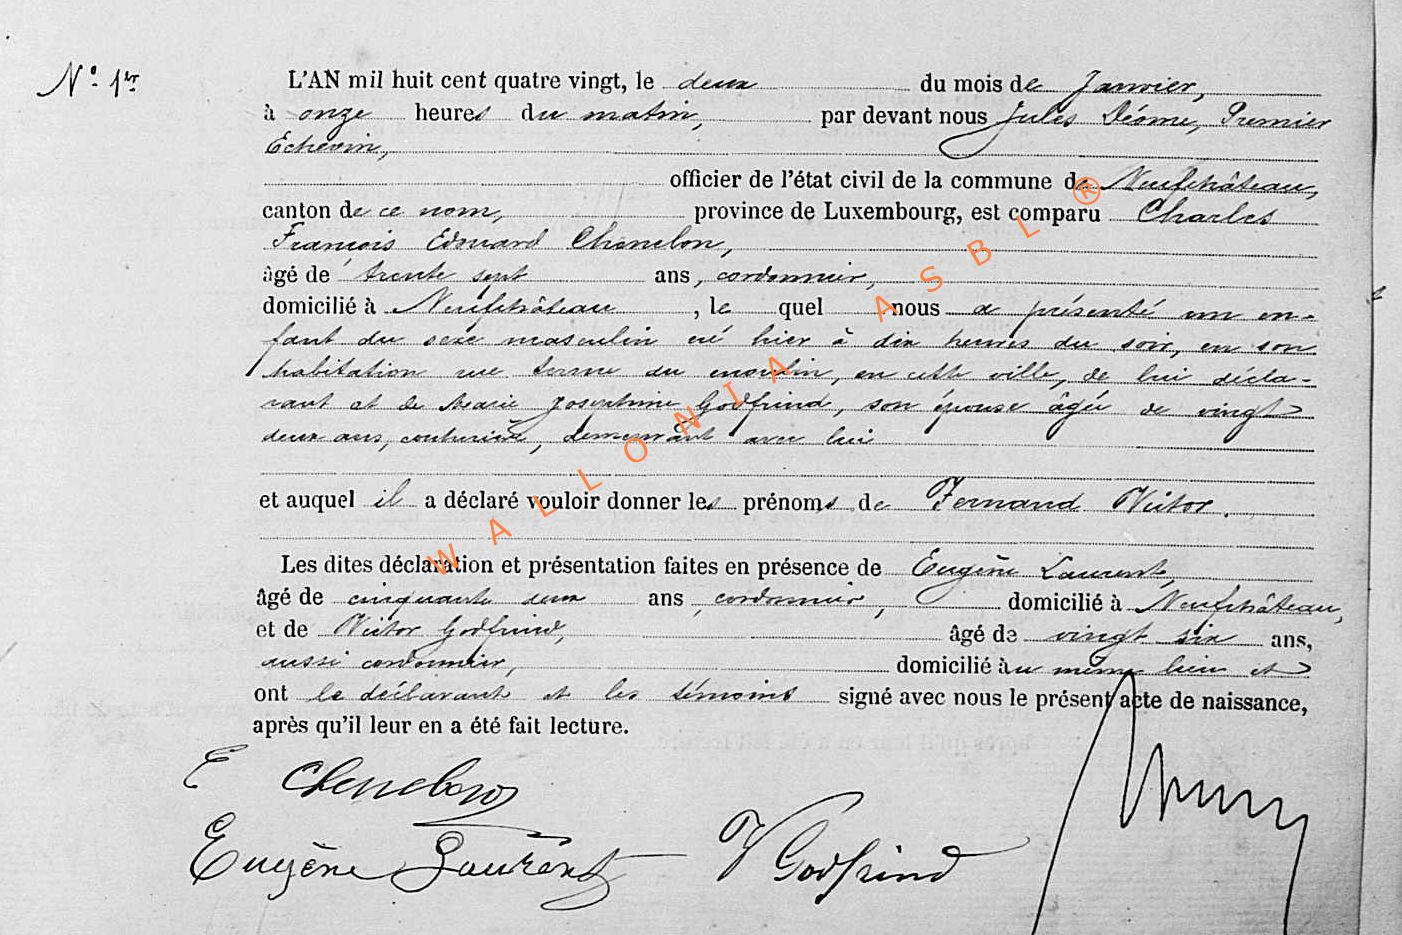 N° 1er
L'AN mil huit cent quatre vingt, le deux du mois de Janvier,
à onze heures du matin, par devant nous Jules Déome, Premier
Echevin,
officier de l'état civil de la commune de Neufchâteau,
canton de ce nom, province de Luxembourg, est comparu Charles
François Edouard Chenelon,
âgé de trente sept ans, cordonnier,
domicilié à Neufchâteau, le quel nous a présenté un en-
fant du sexe masculin né hier à dix heures du soir, en son
habitation rue terme du moulin, en cette ville, de lui décla-
rant et de Marie Josephine Godfrind, son épouse âgée de vingt
deux ans, couturière, demeurant avec lui
et auquel il a déclaré vouloir donner les prénoms de Fernand Victor.
Les dites déclaration et présentation faites en présence de Eugène Laurent,
âgé de cinquante deux ans, cordonnier, domicilié à Neufchâteau,
et de Victor Godfrind, âgé de vingt six ans,
aussi cordonnier, domicilié au même lieu et
ont le déclarant et les témoins signé avec nous le présent acte de naissance,
après qu'il leur en a été fait lecture.
E Chenelon
Eugène Laurent V Godfrind
WALLONIA ASBL ®